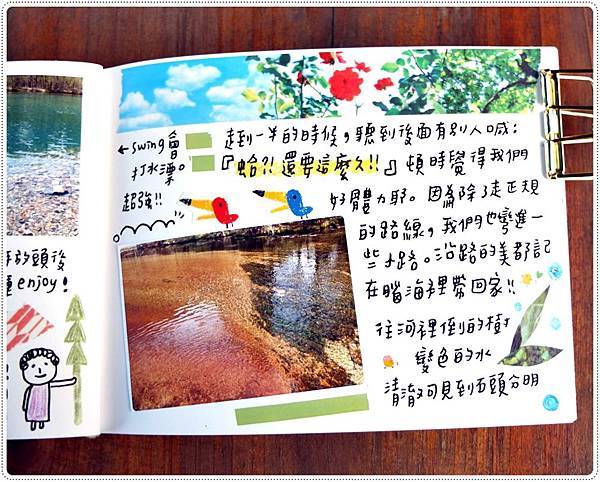 …的頭後
enjoy!
←swing會
打水漂。
超強!!
走到一半的時候,聽到後面有別人喊:
『蛤?!還要這麼久!!』頓時覺得我們
好體力耶。因為除了走正規
的路線,我們也彎進一
些小路。沿路的美都記
在腦海裡帶回家!!
往河裡倒的樹
變色的水
清澈可見到石頭分明